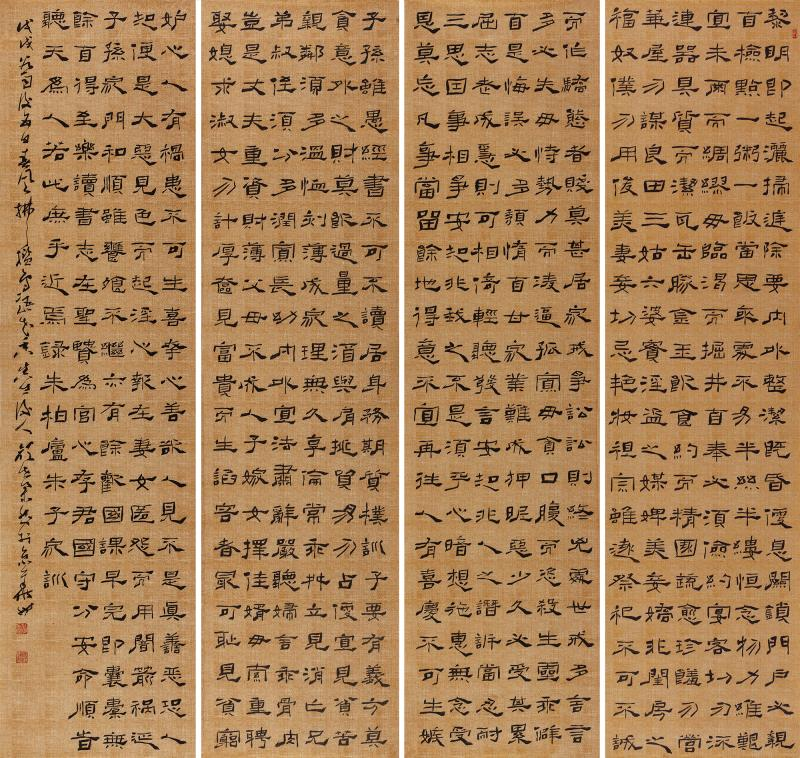 黎明即起灑掃庭除要內外整潔既昏便息關鎖門戶必親
自檢點一粥一飯當思來處不易半絲半縷恒念物力維艱
宜未雨而綢繆毋臨渴而掘井自奉必須儉約宴客勿流
連器具質而潔瓦缶勝金玉飲食約而精園蔬愈珍饈勿營
華屋勿謀良田三姑六婆實淫盜之媒婢美妾嬌非閨房之
福奴僕勿用俊美妻妾切忌艷妝祖宗雖遠祭祀不可不誠
而作驕態者賤莫甚居家戒爭訟訟則終凶處世戒多言言
多必失毋恃勢力而凌逼孤寡毋貪口腹而恣殺生乖僻
自是悔誤必多頹惰自甘家業難成狎昵惡少久必受其累
屈志老成急則可相倚輕聽發言安知非人之譖訴當忍耐
三思因事相爭安知非我之不是須平心暗想施惠無念受
恩莫忘凡事當留餘地得意不宜再往人有喜慶不可生嫉
子孫雖愚經書不可不讀居身務期質樸訓子要有義方莫
貪意外之財莫飲過量之酒與肩挑貿易勿占便宜見貧苦
親鄰須多溫恤刻薄成家理無久享倫常乖舛立見消亡兄
弟叔侄須分多潤寡長幼內外宜法肅辭嚴聽婦言乖骨肉
豈是丈夫重資財薄父母不成人子嫁女擇佳婿毋索重聘
娶媳求淑女勿計厚奩見富貴而生諂容者最可恥見貧窮
妒心人有禍患不可生喜幸心善欲人見不是真善惡恐人
知便是大惡見色而起淫心報在妻女匿怨而用暗箭禍延
子孫家門和順雖饔飧不繼亦有餘歡國課早完即囊橐無
餘自得至樂讀書志在聖賢為官心存君國守分安命順時
聽天為人若此庶乎近焉錄朱柏廬朱子家訓
戊戌